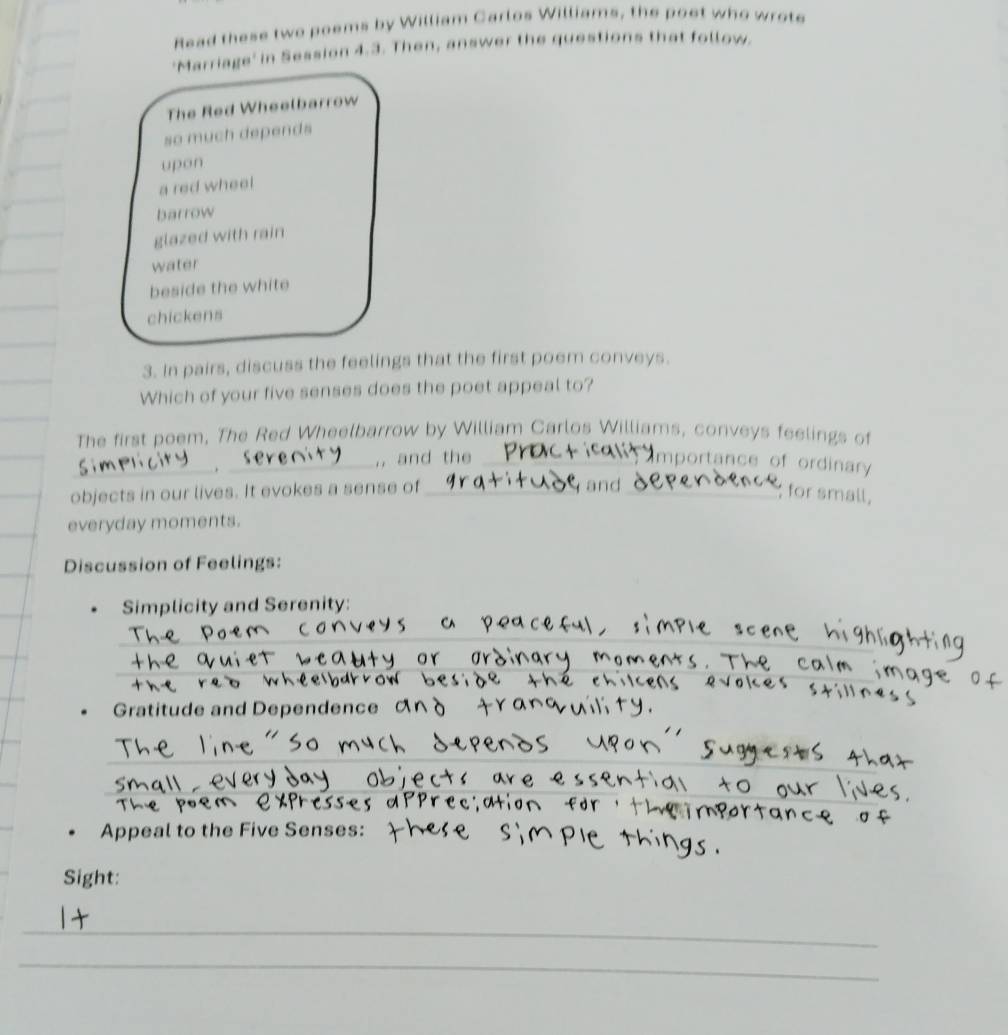 Read these two poems by William Carlos Williams, the poet who wrote
'Marriage' in Session 4.3. Then, answer the questions that follow.
The Red Wheelbarrow
so much depends
upon
a red wheel
barrow
glazed with rain
water
beside the white
chickens
3. In pairs, discuss the feelings that the first poem conveys.
Which of your five senses does the poet appeal to?
The first poem, The Red Wheelbarrow by William Carlos Williams, conveys feelings of
simplicity, serenity,, and the Practicality importance of ordinary
objects in our lives. It evokes a sense of gratitude, and dependence, for small,
everyday moments.
Discussion of Feelings:
• Simplicity and Serenity:
The poem conveys a peaceful, simple scene highlighting
the quiet beauty or ordinary moments. The calm image of
the red wheelbarrow beside the chilcens evokes stillness
• Gratitude and Dependence and tranquility.
The line "so much depends upon" suggests that
small, everyday objects are essential to our lives.
The poem expresses appreciation for the importance of
• Appeal to the Five Senses: these simple things.
Sight:
It